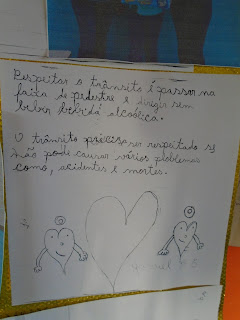 Respeitar o trânsito é passar na
faixa de pedestre e dirigir sem
beber bebida alcoólica.
O trânsito precisa ser respeitado se
não pode causar vários problemas
como, acidentes e mortes.